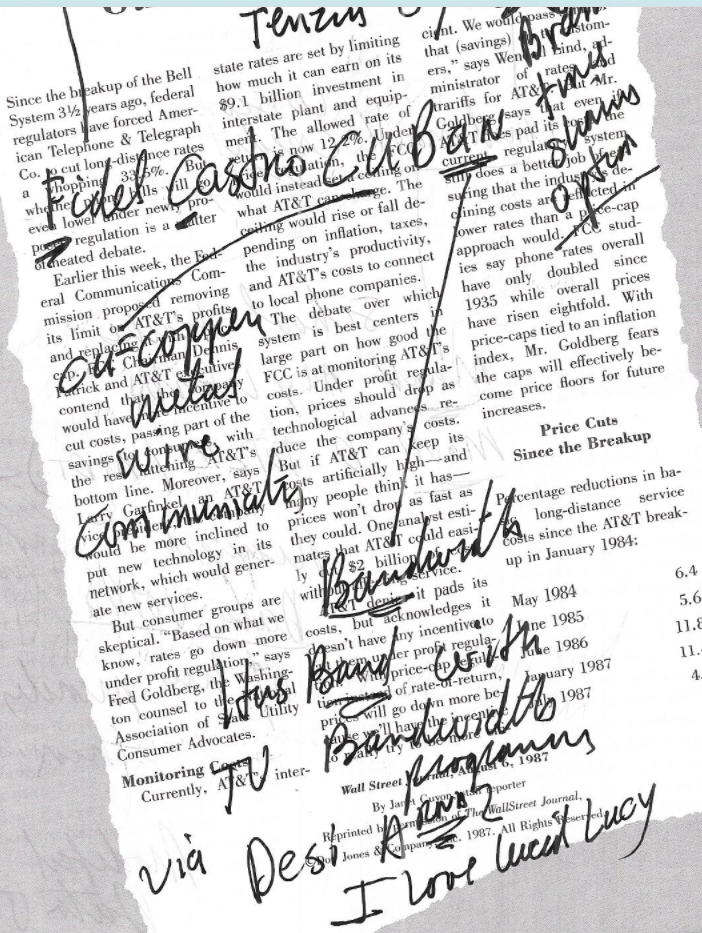 Tenzin
Brain
time
shows
option
Fidel Castro CUBan
Cu-copper
metal
wire
Communists
Bandwidth
His Band with
TV Bandwidth
programs
via Desi Arnaz
I love lucid Lucy
Since the breakup of the Bell
System 3½ years ago, federal
regulators have forced Amer-
ican Telephone & Telegraph
Co. to cut long-distance rates
a whopping 33.5%. But
whether phone bills will go
even lower under newly pro-
posed regulation is a matter
of heated debate.
Earlier this week, the Fed-
eral Communications Com-
mission proposed removing
its limit on AT&T's profits
and replacing it
cap. Chairman Dennis
Patrick and AT&T executives
contend that the company
would have incentive to
cut costs, passing part of the
savings to consumers with
the rest fattening AT&T's
bottom line. Moreover, says
Larry Garfinkel, an AT&T
vice company
would be more inclined to
put new technology in its
network, which would gener-
ate new services.
But consumer groups are
skeptical. "Based on what we
know, rates go down more
under profit regulation," says
Fred Goldberg, the Washing-
ton counsel to the
Association of State Utility
Consumer Advocates.
Monitoring Costs
Currently, AT&T's inter-
state rates are set by limiting
how much it can earn on its
$9.1 billion investment in
interstate plant and equip-
ment. The allowed rate of
return is now 12.2%. Under
price regulation, the FCC
would instead put a ceiling on
what AT&T can charge. The
ceiling would rise or fall de-
pending on inflation, taxes,
the industry's productivity,
and AT&T's costs to connect
to local phone companies.
The debate over which
system is best centers in
large part on how good the
FCC is at monitoring AT&T's
costs. Under profit regula-
tion, prices should drop as
technological advances re-
duce the company's costs.
But if AT&T can keep its
costs artificially high—and
many people think it has—
prices won't drop as fast as
they could. One analyst esti-
mates that AT&T could easi-
ly $2 billion
without service.
AT&T denies it pads its
costs, but acknowledges it
doesn't have any incentive to
under profit regula-
tion. price-cap
of rate-of-return,
prices will go down more be-
cause we'll have the incentive
to try to be more
cient. We would pass
that (savings) custom-
ers," says Wendell Lind, ad-
ministrator of rates and
tariffs for AT&T. But Mr.
Goldberg says that even if
AT&T does pad its costs, the
current regulatory system
still does a better job of
suring that the industry's de-
clining costs are reflected in
lower rates than a price-cap
approach would. FCC stud-
ies say phone rates overall
have only doubled since
1935 while overall prices
have risen eightfold. With
price-caps tied to an inflation
index, Mr. Goldberg fears
the caps will effectively be-
come price floors for future
increases.
Price Cuts
Since the Breakup
Percentage reductions in ba-
sic long-distance service
costs since the AT&T break-
up in January 1984:
May 1984 6.4
June 1985 5.6
June 1986 11.8
January 1987 11.
July 1987 4.
Wall Street Journal, August 6, 1987
By Janet Guyon, Staff Reporter
Reprinted by permission of The Wall Street Journal,
Dow Jones & Company, Inc. 1987. All Rights Reserved.